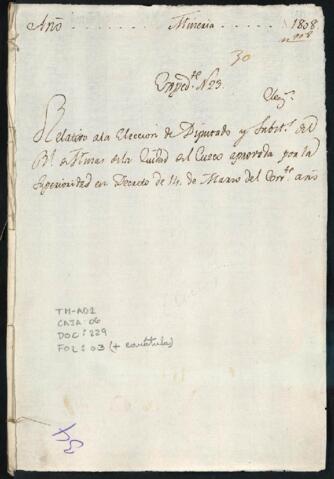 Año . . . . . . . . . . Mineria . . . . . . . . 1808
30
Exped.te N.23.
Relativo ala Eleccion de Diputado y Subt.s del
R.l de Minas de la Ciudad del Cuzco aprovada por la
Superioridad en Decreto de 14 de Marzo del Corr.te año
TM-AD1
CAJA: 06
DOC: 229
FOL: 03 (+ carátula)